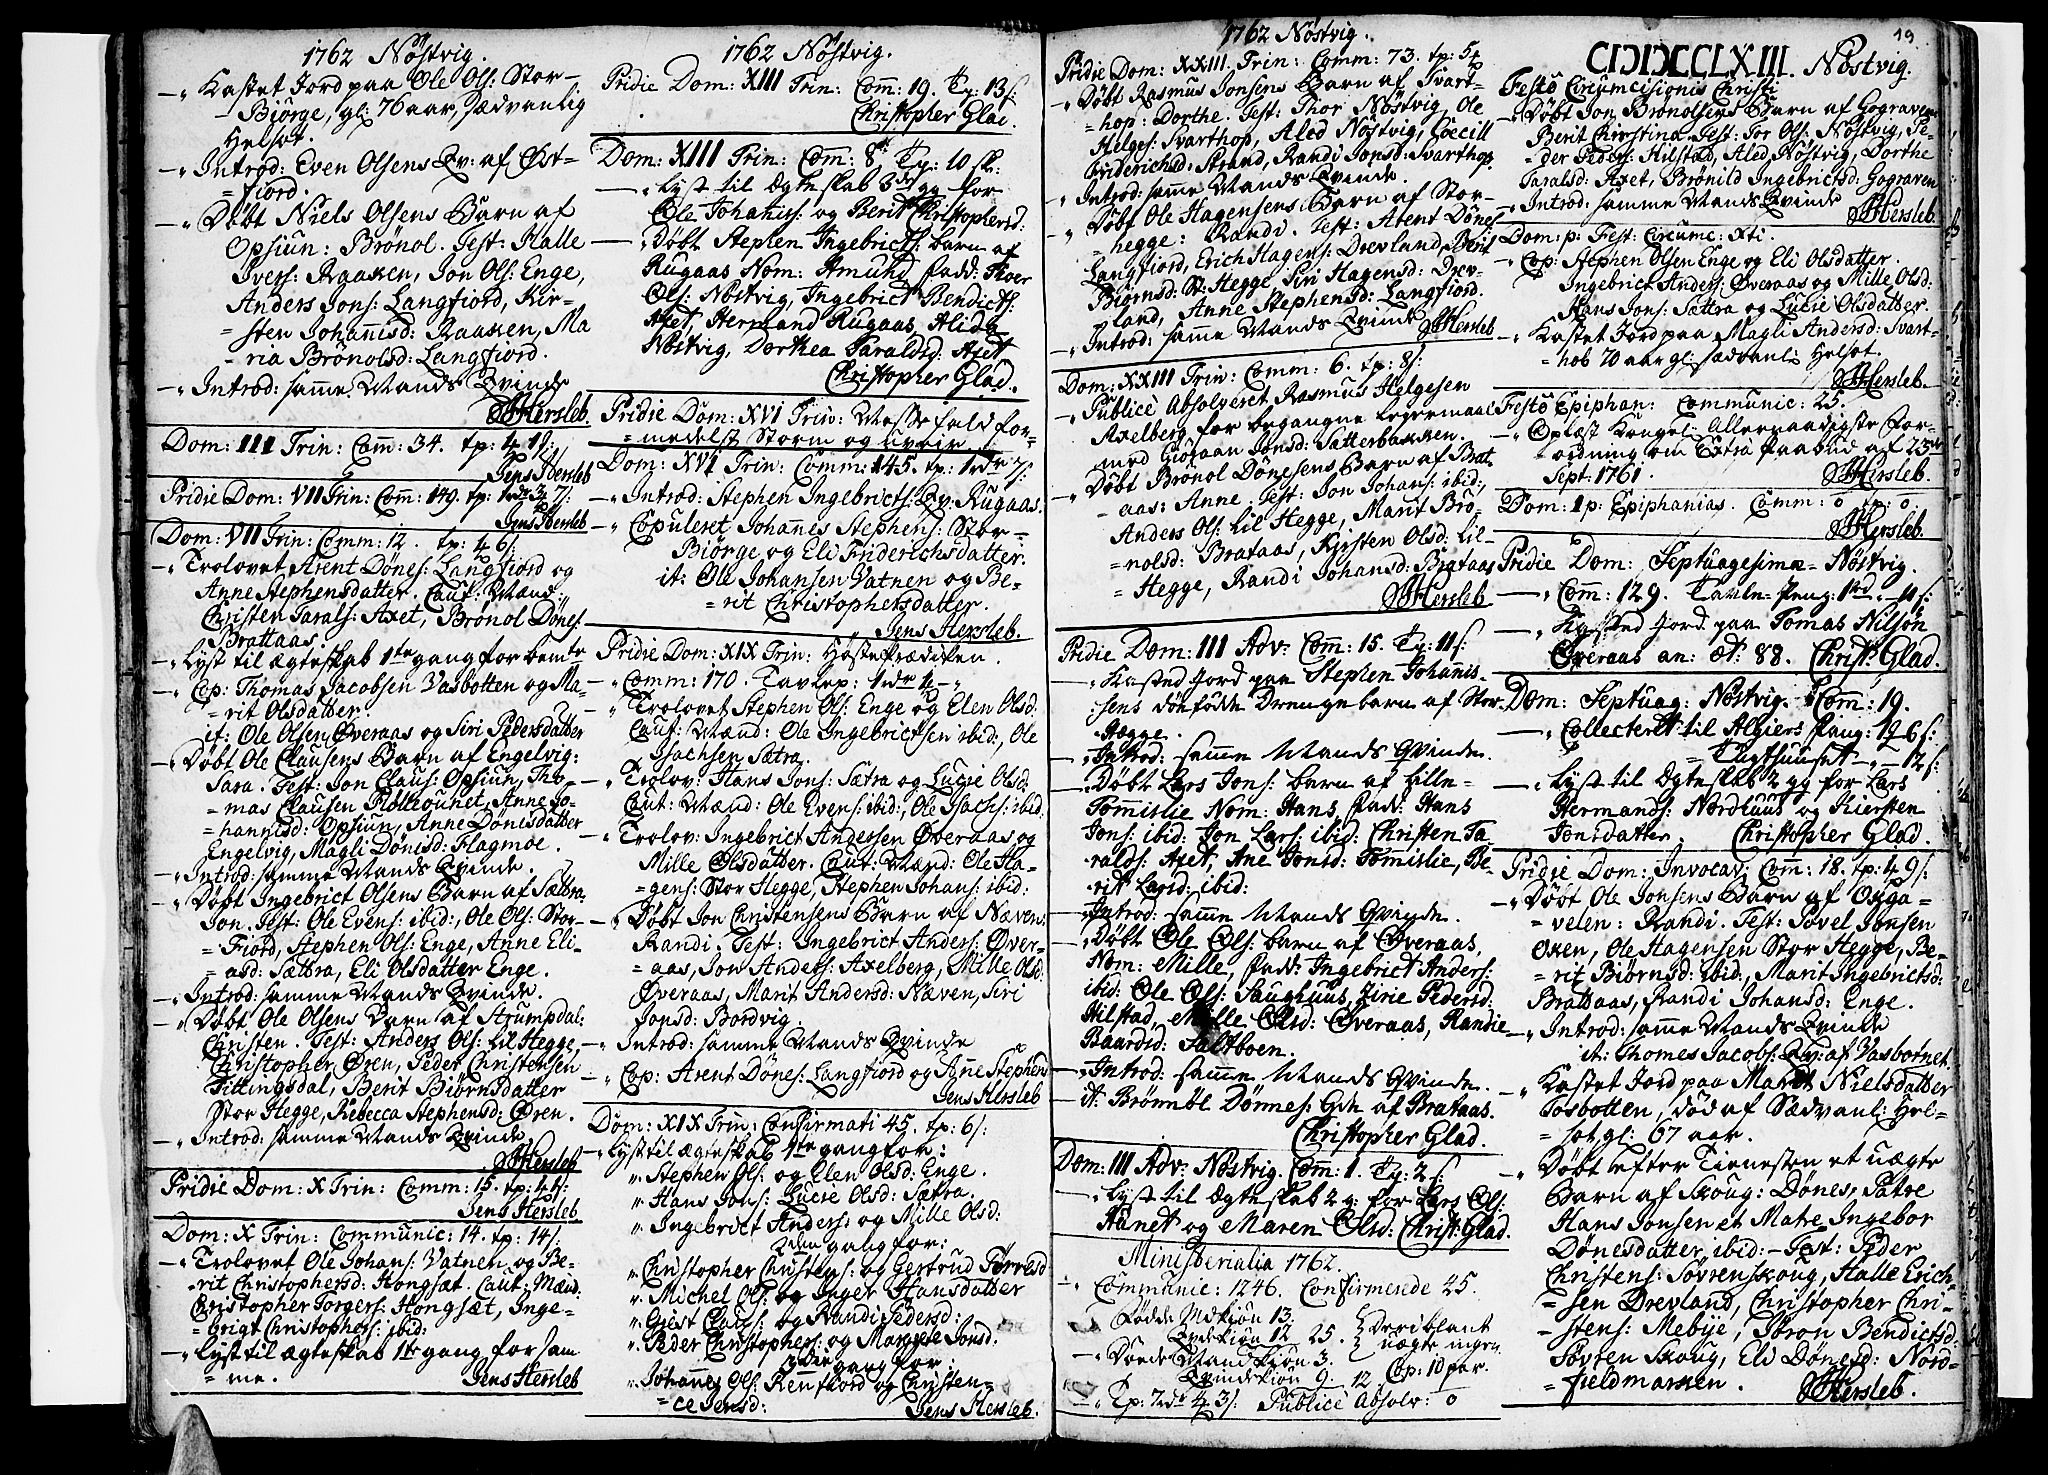 1762 Nöstvig.
—„ Kastet Jord paa Ole Ols: Stor-
- Biörge, gl: 76 aar, sædvanlig
Helsot.
—„ Introd: Even Olsens Qv: af Øst-
=fiord.
—„ Döbt Niels Olsens Barn af
Opsiun: Brönol. Test: Halle
Ivers: Raaken, Jon Ols: Enge,
Anders Jons: Langfiord, Kir-
=sten Johannisd: Raaken, Ma
-ria Brönolsd: Langfiord.
—„ Introd: samme Mands Qvinde
JHersleb.
Dom: III Trin: Com: 34. tp: 4. 1s:
Jens Hersleb
Pridie Dom: VII Trin: Com: 149. tp: 7s:
Jens Hersleb
Dom: VII Trin: Comm: 12. tp: 4 6s:
—„ Trolovet Arent Dönes: Langfiord og
Anne Stephensdatter. Caut: Mænd.,
Christen Tarals: Axet, Brönol Dönes:
Brattaas.
—„ Lyst til ægteskab 1te gang for bemte
—„ Cop: Thomas Jacobsen Vasbotten og Ma-
=rit Olsdatter.
it: Ole Olsen Øveraas og Siri Pedersdatter
—„ Döbt Ole Clausens Barn af Engelvig:
Sara. Test: Jon Claus: Opsiun, Tho-
=mas Clausen, Anne Jo-
=hannisd: Opsiun, Anne Dönisdatter
Engelvig, Magli Dönesd: Flagmoe.
—„ Introd: samme Mands Qvinde.
—„ Döbt Ingebrict Olsens Barn af Sættra:
Jon. Test: Ole Evens: ibid:, Ole Ols: Stor-
=Fiord, Stephen Ols: Enge, Anne Eli-
=asd: Sættra, Eli Olsdatter Enge.
—„ Introd: samme Mands Qvinde.
—„ Döbt Ole Olsens Barn af Strumpdal:
Christen. Test: Anders Ols: Lil Hegge,
Christopher Øren, Peder Christensen
Fittingsdal, Berit Biörnsdatter
Stor Hegge, Rebecca Stephensd: Øren.
—„ Introd: samme Mands Qvinde.
JHersleb
Pridie Dom: X Trin: Comm: 15. tp: 4s:
Jens Hersleb
Dom: X Trin: Communic: 14. tp: 14s:
—„ Trolovet Ole Johans: Vatnen og Be-
=rit Christophersd: Hongsæt. Caut: Mænd:
Christopher Torgers: Hongsæt, Inge-
=brigt Christophers: ibid:
—„ Lyst til ægteskab 1te gang for sam
=me. Jens Hersleb
1762 Nöstvig.
Pridie Dom: XIII Trin: Com: 19. Tp: 13s:
Christopher Glad.
Dom: XIII Trin: Com: 8. Tp: 10 sk:
—„ Lyst til Ægteskab 3die gg for
Ole Johanis: og Berit Christophersd:
—„ Döbt Stephen Ingebricts: barn af
Rugaas Nom: Amund, fadd: Thoer
Ols: Nöstvig, Ingebrict Bendicts:
Axet, Hermand Rugaas, Alida
Nöstvig, Dorthea Taraldsd: Axet
Christopher Glad.
Pridie Dom: XVI Trin: Messefald for-
=medelst Storm og uveir
Dom: XVI Trin: Comm: 145. tp: 1rdr 7s:
—„ Introd: Stephen Ingebricts: Qv: Rugaas.
—„ Copuleret Johannes Stephens: Stor=
Biörge og Eli Friderichsdatter.
it: Ole Johansen Vatnen og Be-
=rit Christophersdatter.
Jens Hersleb.
Pridie Dom: XIX Trin: Höstepræediken.
—„ Comm: 170. Tavlep: 1rdr
—„ Trolovet Stephen Ols: Enge og Elen Olsd:
Caut: Mænd: Ole Ingebrictsen ibid:, Ole
Isachsen Sætra.
—„ Trolov: Hans Jons: Sætra og Lucie Olsd:
Caut: Mænd: Ole Evens: ibid:, Ole Isachs: ibid
—„ Trolov: Ingebrict Andersen Øveraas og
Mille Olsdatter. Caut: Mænd: Ole Ha-
=gens: Stor Hegge, Stephen Johans: ibid:
—„ Döbt Jon Christensens Barn af Næven:
Randi. Test: Ingebrict Anders: Øver-
=aas, Jon Anders: Axelberg, Mille Olsd:
Øveraas, Marit Andersd: Næven, Siri
Jonsd: Bordvig.
—„ Introd: samme Mands Qvinde
—„ Cop: Arent Dönes: Langfiord og Anne Stephensd
Jens Hersleb
Dom: XIX Trin: Confirmati 45. tp: 6s:
—„ Lyst til ægteskab 1te gang for:
„ Stephen Ols: og Elen Olsd: Enge.
„ Hans Jons: Lucie Olsd: Sætra.
„ Ingebrict Anders: og Mille Olsd:
2den gang for:
„ Christopher Christens: og Gertrud Torresd
„ Michel Ols: og Inger Hansdatter
„ Giest Claus: og Randi Pedersd:
„ Peder Christophers: og Margrete Jonsd:
3die gang for:
„ Johannes Ols: Renfiord og Christen-
=ce Jensd: Jens Hersleb.
1762 Nöstvig.
Pridie Dom: XXIII. Trin: Comm: 73. tp:
—„ Döbt Rasmus Jonsens Barn af Svart-
=hop: Dorthe. Test: Thor Nöstvig, Ole
Helges: Svarthop, Aled Nöstvig, Cecill
Friderichsd: Strand, Randi Jonsd: Svarthop.
—„ Introd: samme Mands Qvinde.
—„ Döbt Ole Hagensens Barn af Stor-
hegge: Randi. Test: Arent Dönes:
Langfiord, Erich Hagens: Drevland, Berit
Biörnsd: St: Hegge, Siri Hagensd: Drev-
land, Anne Stephensd: Langfiord.
—„ Introd: samme Mands Qvinde
JHersleb
Dom: XXIII Trin: Comm: 6. tp: 8s:
—„ Publicè Absolveret Rasmus Helgesen
Axelberg for begangne Leyermaal
med Giöraan Jonsd: Satterbakken.
—„ Döbt Brönol Dönesens Barn af Brat
=aas: Anne. Test: Jon Johans: ibid:,
Anders Ols: Lil Hegge, Marit Brö-
=nolsd: Brataas, Kirsten Olsd: Lil-
=Hegge, Randi Johansd: Brataas
JHersleb
Pridie Dom: III Adv: Com: 15. Tp: 11s
—„ Kasted Jord paa Stephen Johannis-
sens dödfödde Drengebarn af Stor-
Hegge.
—„ Introd: samme Mands Qvinde.
—„ Döbt Lars Jons: barn af Lille-
Tommislie Nom: Hans, fad: Hans
Jons: ibid: Jon Lars: ibid: Christen Ta-
ralds: Axet, Ane Jonsd: Tomislie, Be-
rit Larsd: ibid:
—„ Introd: samme Mands Qvinde.
—„ Döbt Ole Ols: barn af Øveraas,
Nom: Mille, fadd: Ingebrict Anders:
ibid: Ole Ols: Saughuus, Zirie Pedersd:
Hilstad, Mille Olsd: Øveraas, Randie
Baardsd: Saltboen.
—„ Introd: samme Mands Qvinde.
—„ it: Brönnöl Dönnes: Qvd: af Brataas.
Christopher Glad.
Dom: III Adv: Nöstvig. Com: 1. Tp: 2s
—„ Lyst til Ægteskab 2 g: for Lars Ols:
Hanet og Maren Olsd: Christ: Glad.
Ministerialia 1762.
—„ Communic: 1246. Confirmende 45.
Födde Mckiön 13.
Qvdekiön 12 25. deriblant uægte ingen
—„ Döede Mandkiön 3.
Qvindekiön 9. 12 Cop: 10 par.
—„ Tp: 7rdr 43s Publicè Absolv: 0
19
CIƆIƆCCLXIII. Nöstvig.
Festô Circumcisionis Christi
—„ Döbt Jon Brönolsens Barn af Gograven
Berit Kirstina. Test: Tor Ols: Nöstvig, Pe-
der Peders: Hilstad, Aled Nöstvig, Dorthe
Taralsd: Axet, Brönild Ingebrictsd: Gograven
—„ Introd: samme Mands Qvinde
JHersleb
Dom: p: Fest: Circumc: Xti.
—„ Cop: Stephen Olsen Enge og Eli Olsdatter.
Ingebrict Anders: Øveraas og Mille Olsd:
Hans Jons: Sættra og Lucie Olsdatter.
—„ Kastet Jord paa Magli Andersd: Svart-
=hob 70 aar gl: sædvanli: Helsot.
JHersleb.
Festô Epiphan: Communic: 25.
—„ Oplæst Kongel: Allernaadigste For-
ordning om Extra Paabud af 23de
Sept: 1761. JHersleb.
Dom: 1 p: Epiphanias. Comm: 0 tp: 0.
JHersleb.
Pridie Dom: Septuagesimæ Nöstvig.
—„ Com: 129. Tavle-Peng: 1rd
—„ Kasted Jord paa Tomas Nilsön
Øveraas an: æt: 88. Christ: Glad.
Dom: Septuag: Nöstvig. Com: 19.
—„ Collecteret til Algiers Fang: 1 96s:
Tugthuuset - „ - 12s:
—„ Lyst til Ægteskab 2 gg for Lars
Hermands: Nordhuus og Kiersten
Jonsdatter. Christopher Glad.
Pridie Dom: Invocav: Com: 18. tp: 49s:
—„ Döbt Ole Jonsens Barn af Oxga-
velen: Randi. Test: Povel Jonsen
Oxen, Ole Hagensen Stor Hegge, Be-
=rit Biörnsd: ibid:, Marit Ingebrictsd:
Brattaas, Randi Johansd: Enge.
—„ Introd: samme Mands Qvinde
it: Thomes Jacobs: Qv: af Vasbotnet.
—„ Kastet Jord paa Marit Nielsdatter
Tosbotten, död af Sædvanl: Hel-
=sot gl: 67 aar.
—„ Döbt efter Tienesten et uægte
Barn af Skoug: Dönes, Patre
Hans Jonsen et Mate, Ingebor
Dönesdatter ibid: - Test: Peder
Christens: Sövrenskoug, Halle Erich-
=sen Drevland, Christopher Chri-
=stens: Mebye, Sören Bendictsd:
Sövren Skoug, Eli Dönesd: Nord-
=fieldmarken. JHersleb.